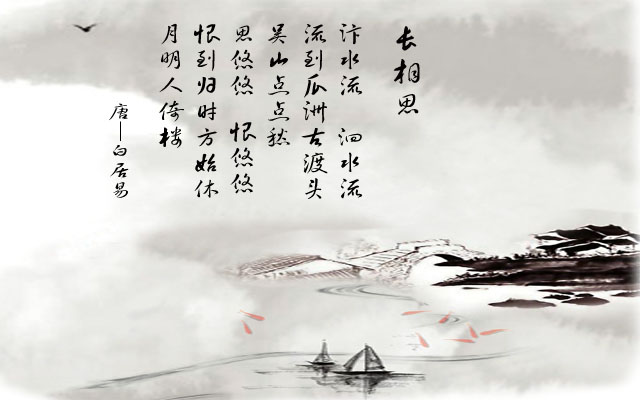 长相思
汴水流 泗水流
流到瓜洲古渡头
吴山点点愁
思悠悠 恨悠悠
恨到归时方始休
月明人倚楼
唐—白居易